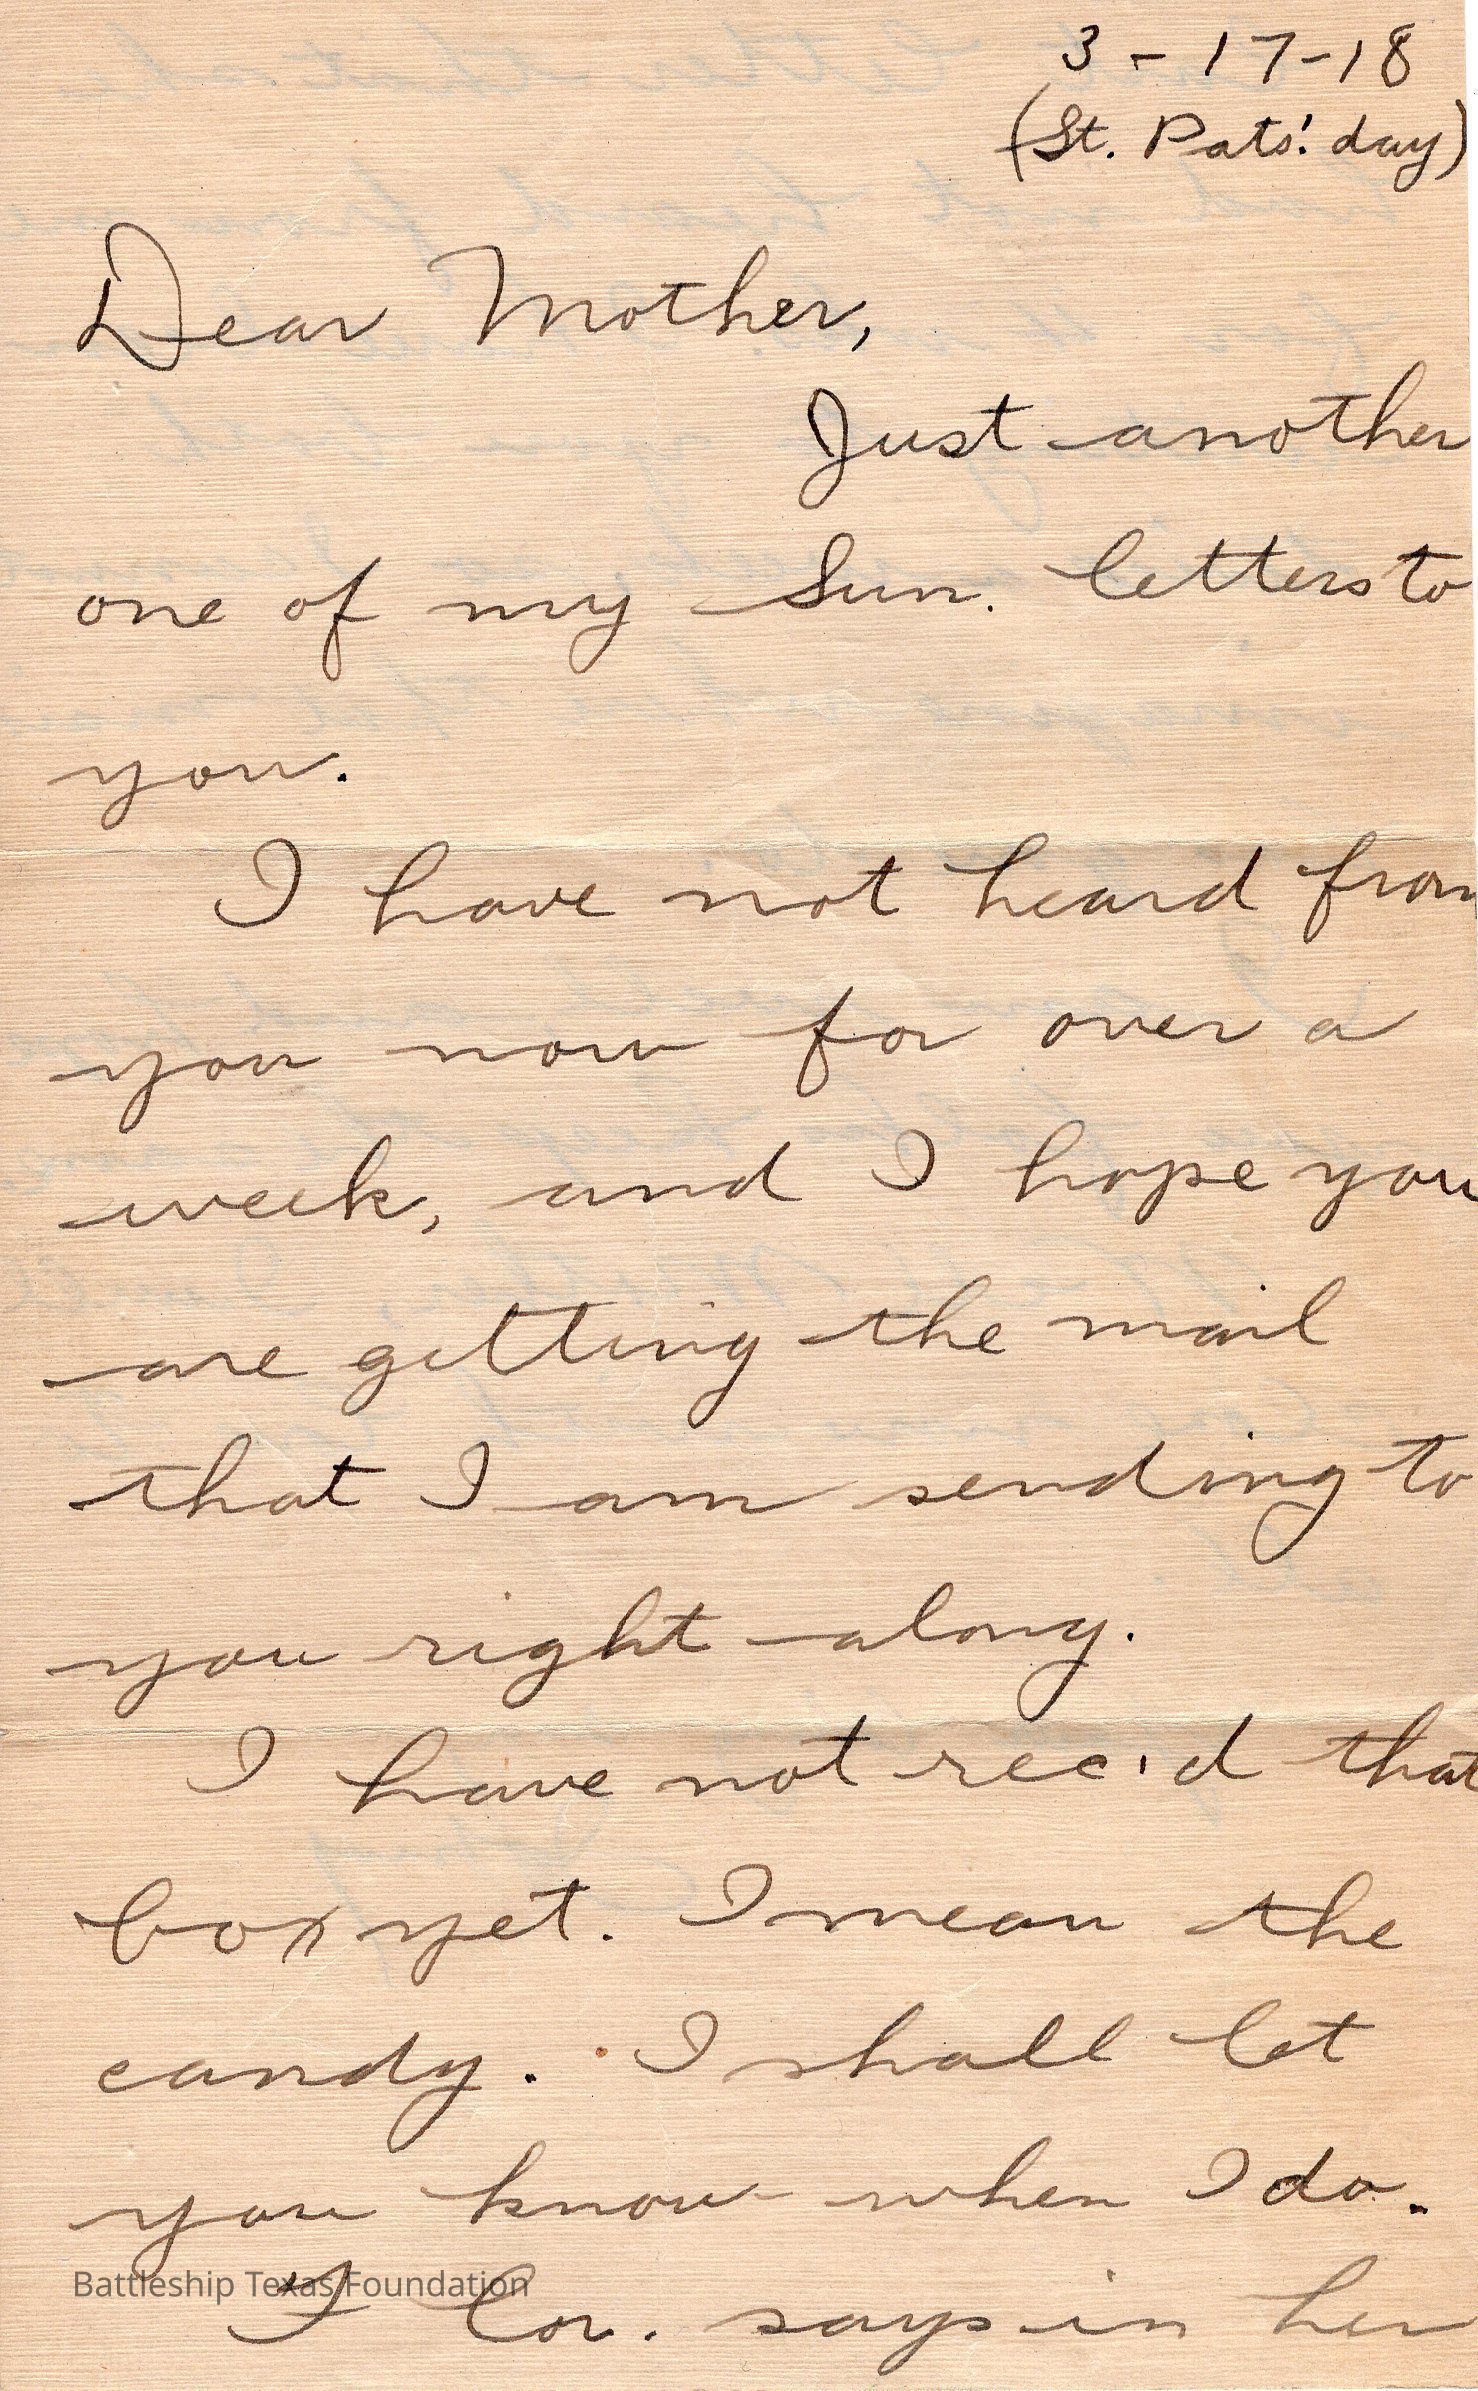 3-17-18
(St. Pats'. day)
Dear Mother,
Just another
one of my Sun. letters to
you.
I have not heard from
you now for over a
week, and I hope you
are getting the mail
that I am sending to
you right along.
I have not rec'd that
box yet. I mean the
candy. I shall let
you know when I do.
Battleship Texas Foundation
says in her